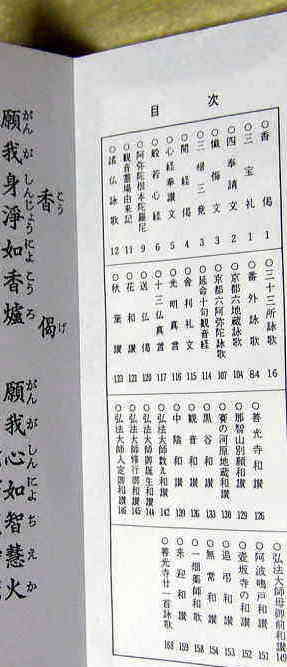 目次
○香偈 1
○三宝礼 1
○四奉請文 2
○懺悔文 3
○三帰三竟 3
○開経偈 4
○心経奉讃文 5
○般若心経 6
○阿弥陀根本陀羅尼 9
○観音霊場由来記 11
○諸仏詠歌 12
○三十三所詠歌 16
○番外詠歌 84
○京都六地蔵詠歌 104
○京都六阿弥陀詠歌 107
○延命十句観音経 114
○舎利礼文 115
○光明真言 116
○十三仏真言 117
○送仏偈 120
○花和讃 121
○秋葉讃 123
○善光寺和讃 126
○那智山別願和讃 129
○賽の河原地蔵和讃
○黒谷和讃
○観音和讃
○中陰和讃 139
○弘法大師数え和讃 142
○弘法大師御誕生和讃 144
○弘法大師修行御和讃 145
○弘法大師入定御和讃 146
○弘法大師母御前和讃 149
○阿波鳴戸和讃 151
○壷坂寺の和讃 152
○追弔和讃 153
○無常和讃 154
○一畑薬師和歌 158
○来迎和讃 159
○善光寺廿一首詠歌 168
香偈
とう げ
願我身淨如香爐
がんがしんじょうにょとうろ
願我心如智慧火
がんがしんにょちえか